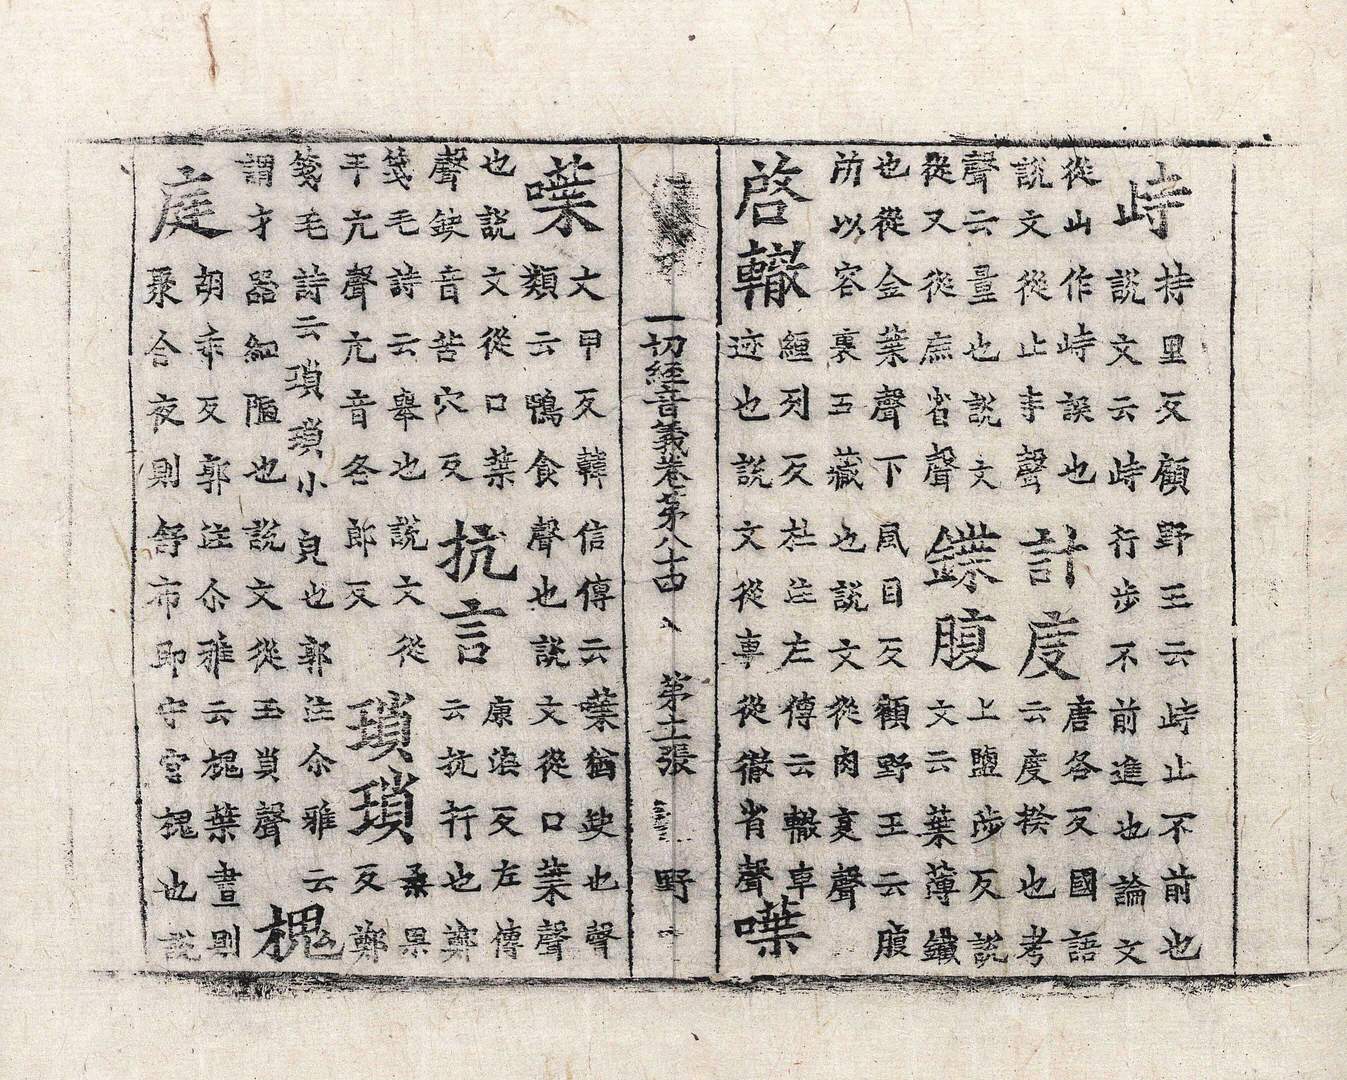 峙持里反顧野王云峙止不前也
說文云峙行步不前進也論文
從山作峙誤也計度唐各反國語
說文從止寺聲云度揆也考
聲云量也說文鍱腹上鹽涉反說
從又從庶省聲文云葉薄鐵
也從金葉聲下風目反顧野王云腹
所以容裹五藏也說文從肉复聲
啓轍纏列反杜注左傳云轍車㗼
迹也說文從專從徹省聲
一切經音義卷第八十四 第十一張 野
㗼大甲反韓信傳云㗼猶缺也聲
類云鴨食聲也說文從口葉聲
也說文從口葉抗言康浪反左傳
聲缺音苦穴反云抗行也鄭
箋毛詩云舉也說文從瑣瑣桑果
手亢聲亢音各郎反反鄭
箋毛詩云瑣瑣小皃也郭注尒雅云槐
謂才器細陋也說文從玉𧴪聲
庭胡乖反郭注尒雅云槐葉晝則
聚合夜則舒布即守宮槐也說